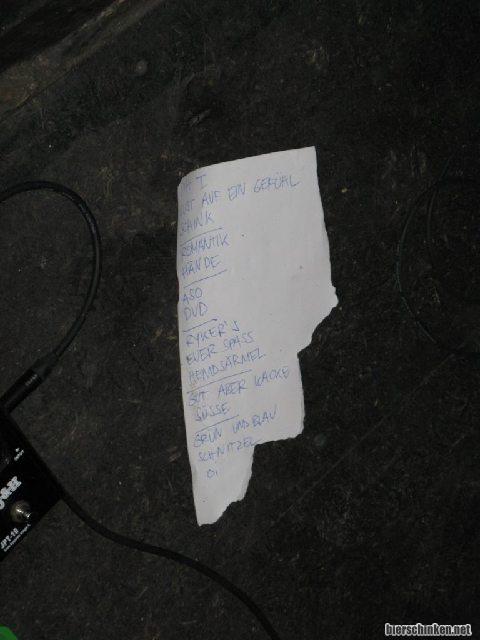 T
AUF EIN GEFÜHL
ROMANTIK
HÄNDE
ASO
DVD
RYKER'S
EUER SPASS
HEMDSÄRMEL
GUT ABER KACKE
SÜSSE
GRÜN UND BLAU
SCHNITZEL
OI
JPT-10
bierschinken.net